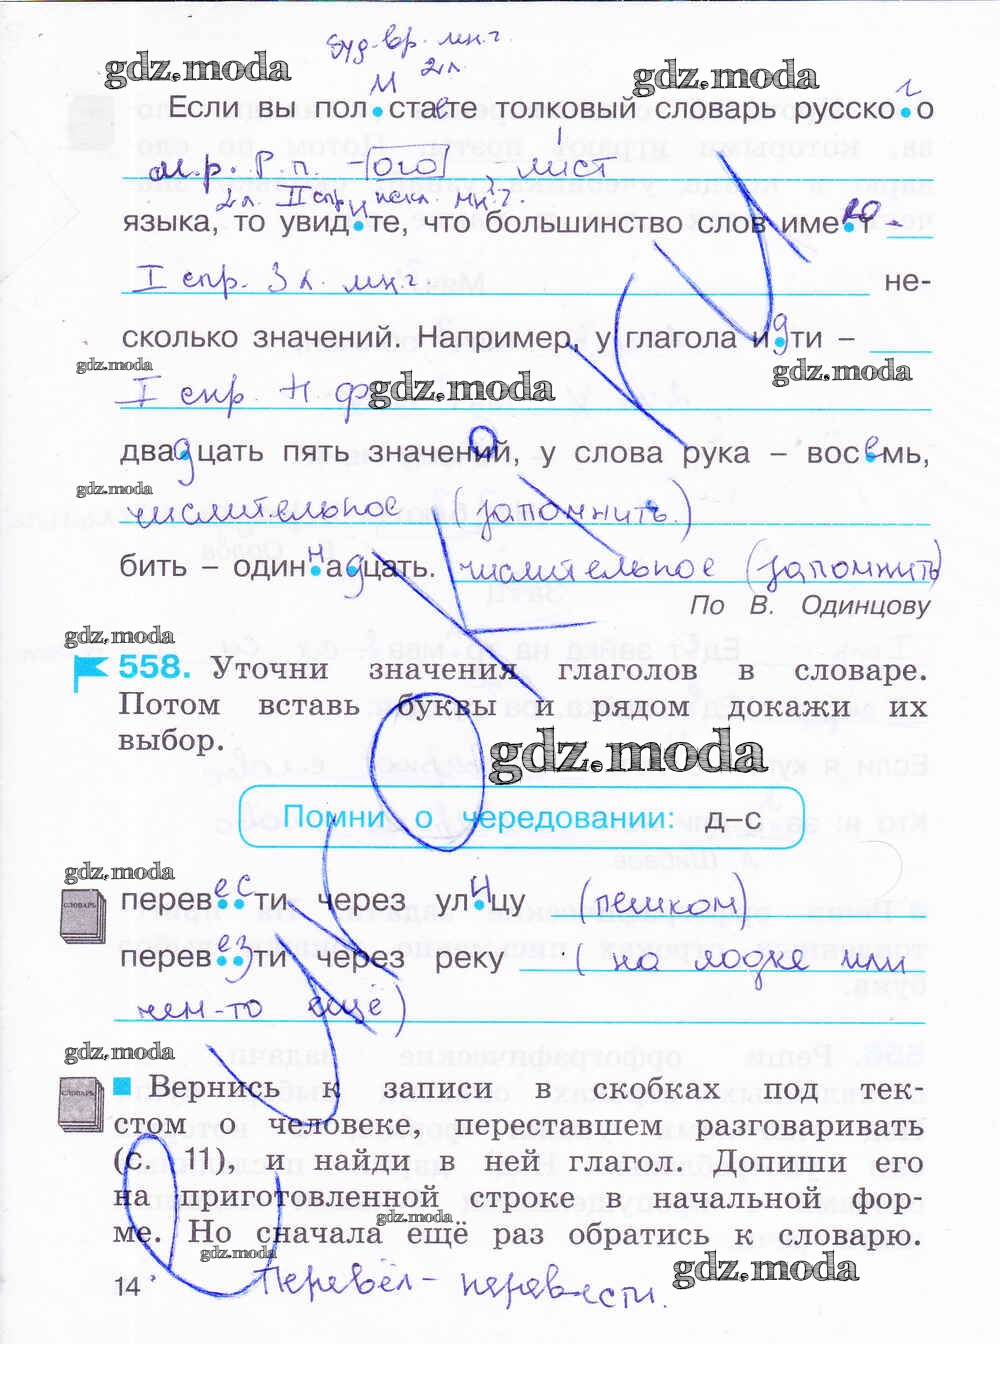 буд. вр. мн.ч.
gdz.moda и 2 л. gdz.moda г
Если вы пол•стаете толковый словарь русско•о
м.р. Р.п. -ого, - лист
2л. II спр, искл. мн.ч.
языка, то увид•те, что большинство слов име•т -
I спр. 3 л. мн.ч не-
сколько значений. Например, у глагола идти –
gdz.moda gdz.moda gdz.moda
I спр. Н ф
двадцать пять значений, у слова рука – восемь,
gdz.moda
числительное (запомнить.)
бить – одиннадцать. числительное (запомнить)
По В. Одинцову
gdz.moda
558. Уточни значения глаголов в словаре.
Потом вставь буквы и рядом докажи их
выбор.
gdz.moda
Помни о чередовании: д–с
gdz.moda
СЛОВАРЬ
перевести через улицу (пешком)
перевезти через реку (на лодке или
чем-то ещё)
gdz.moda
СЛОВАРЬ
Вернись к записи в скобках под тек-
стом о человеке, переставшем разговаривать
(с. 11), и найди в ней глагол. Допиши его
на приготовленной строке в начальной фор-
gdz.moda
ме. Но сначала ещё раз обратись к словарю.
gdz.moda gdz.moda
14 Перевёл - перевести.